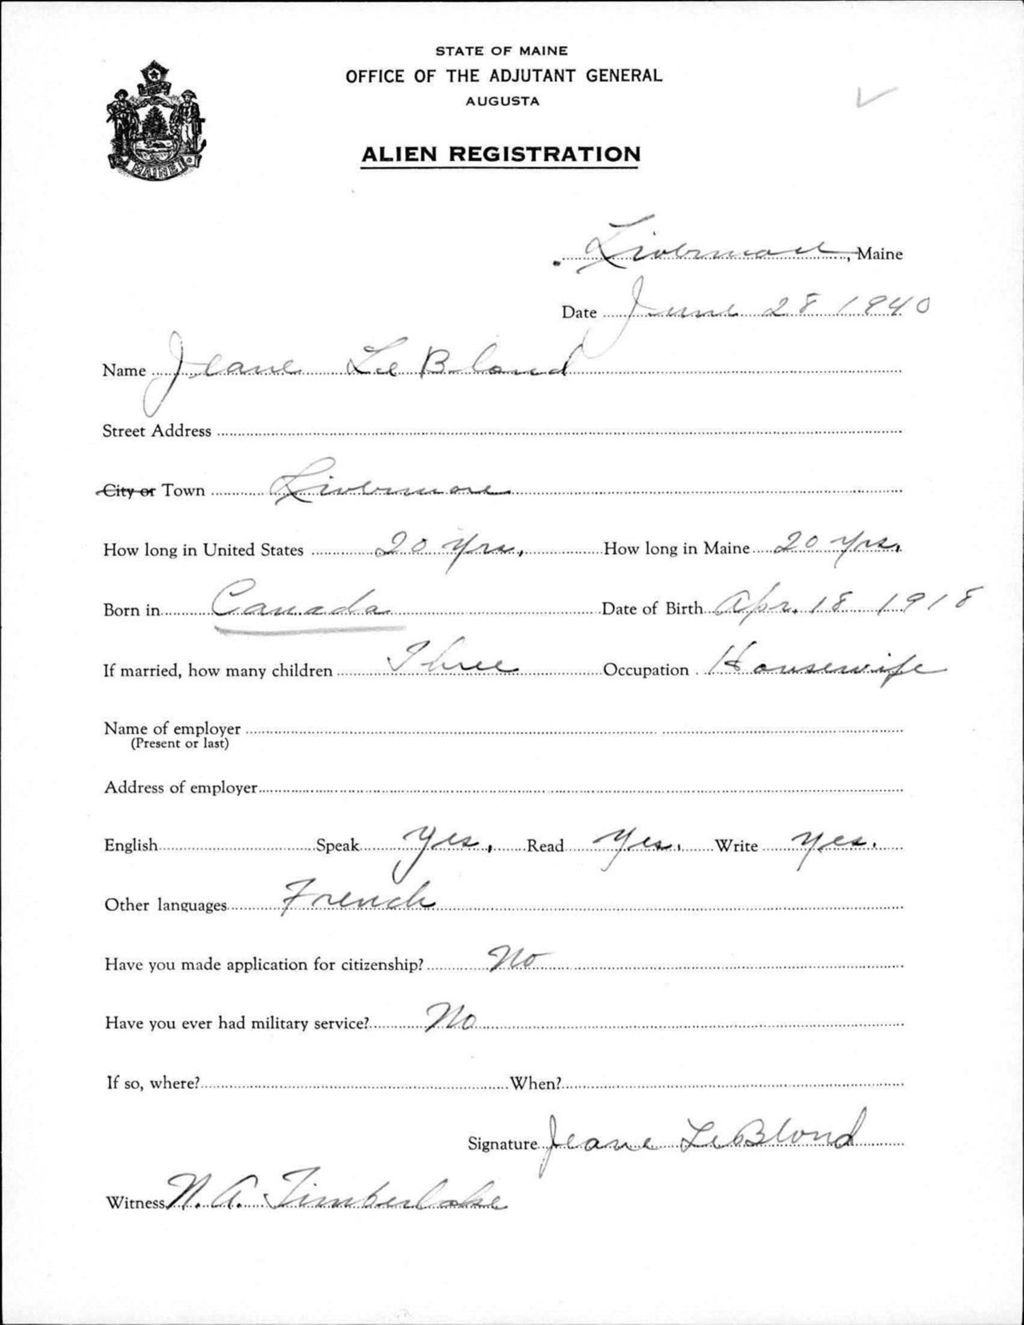 STATE OF MAINE
OFFICE OF THE ADJUTANT GENERAL
AUGUSTA
ALIEN REGISTRATION
MAINE
Livermore, Maine
Date June 28 1940
Name Jeane Le Blond
Street Address
City or Town Livermore
How long in United States 20 yrs. How long in Maine 20 yrs.
Born in Canada Date of Birth Apr. 18 1918
If married, how many children Three Occupation Housewife
Name of employer
(Present or last)
Address of employer
English Speak Yes. Read Yes. Write Yes.
Other languages French
Have you made application for citizenship? No
Have you ever had military service? No
If so, where? When?
Signature Jeane LeBlond
Witness N. A. Timberlake